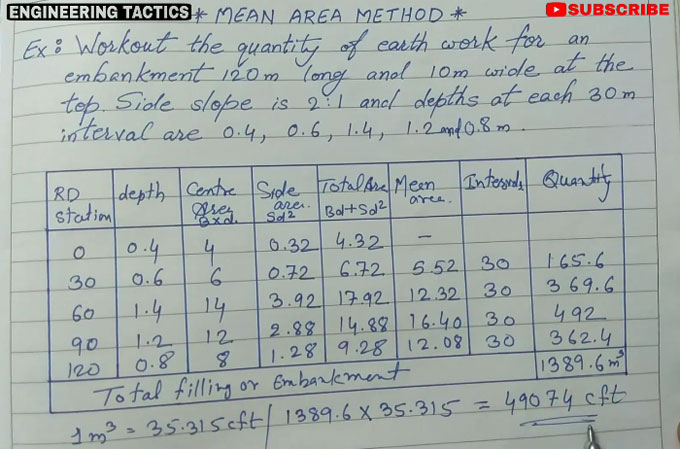 ENGINEERING TACTICS * MEAN AREA METHOD * SUBSCRIBE
Ex: Workout the quantity of earth work for an
embankment 120m long and 10m wide at the
top. Side slope is 2:1 and depths at each 30m
interval are 0.4, 0.6, 1.4, 1.2 and 0.8m.
RD Station depth Centre Area Bxd. Side area. Sd² Total Are Bd+Sd² Mean area. Quantity
0 0.4 4 0.32 4.32 -
30 0.6 6 0.72 6.72 5.52 30 165.6
60 1.4 14 3.92 17.92 12.32 30 369.6
90 1.2 12 2.88 14.88 16.40 30 492
120 0.8 8 1.28 9.28 12.08 30 362.4
Total filling or Embankment 1389.6 m³
1m³ = 35.315 cft / 1389.6 x 35.315 = 49074 cft